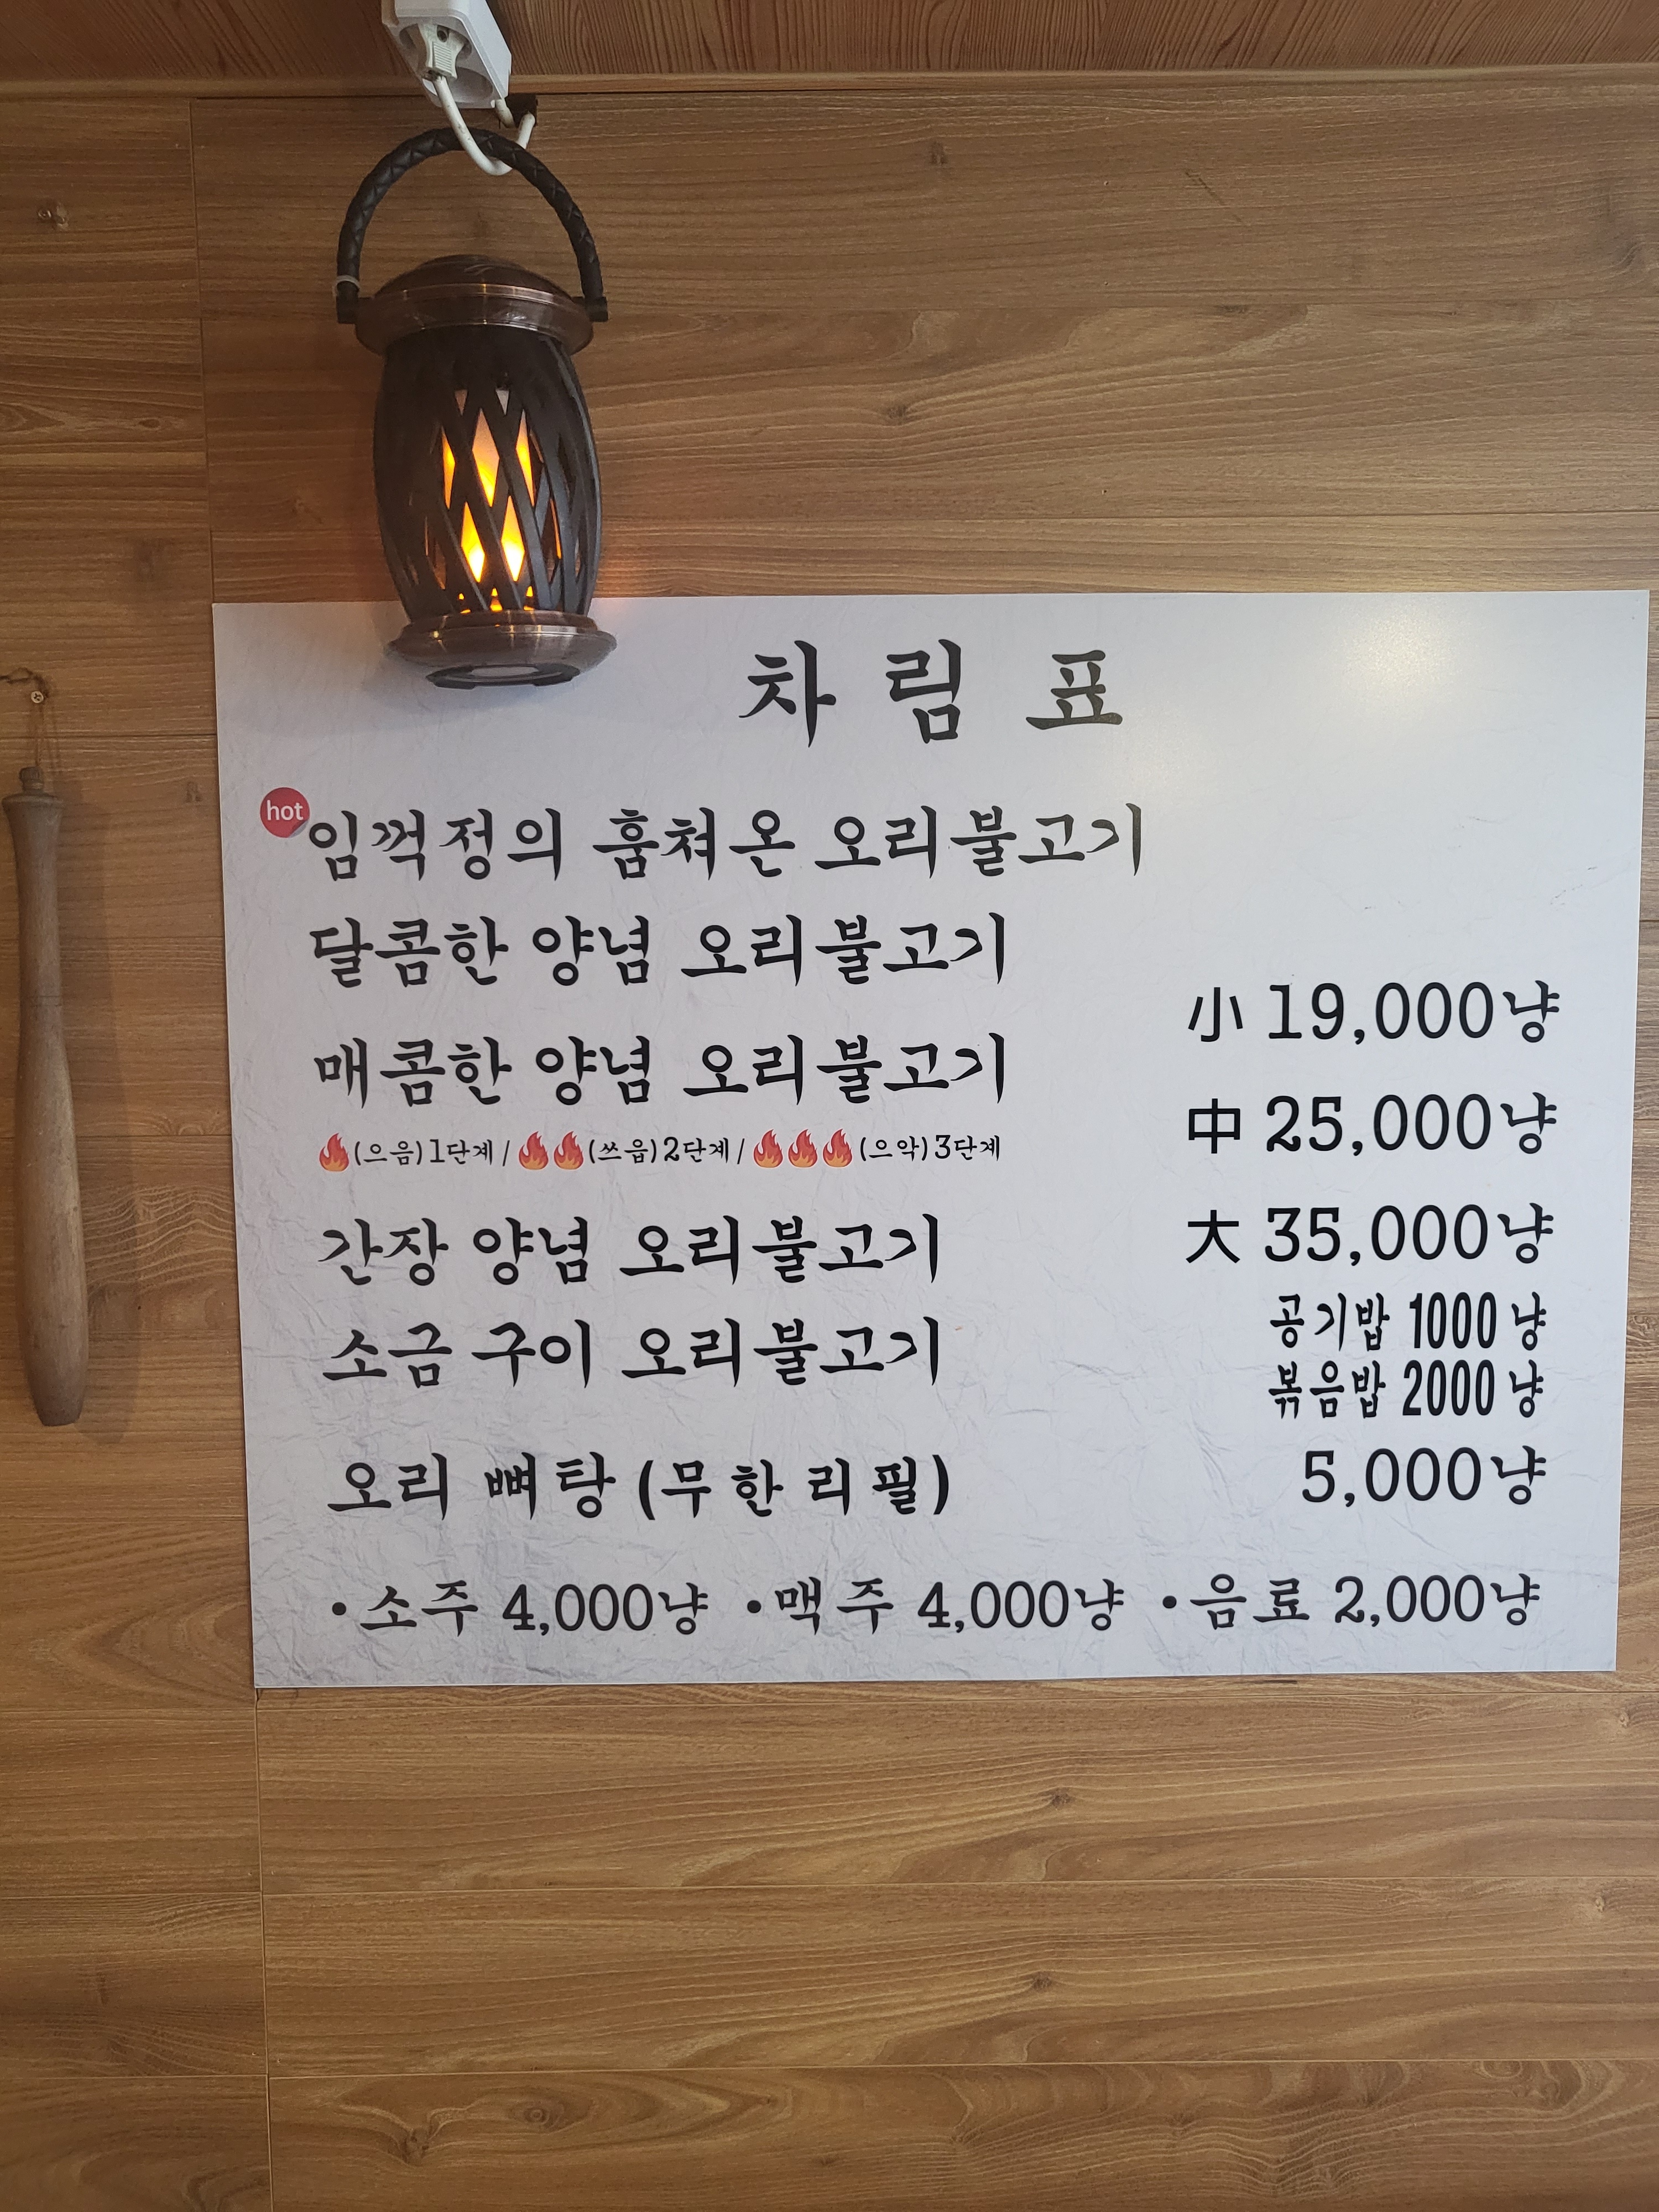 차림표
hot
임꺽정의 훔쳐온 오리불고기
달콤한 양념 오리불고기
小 19,000냥
매콤한 양념 오리불고기
中 25,000냥
🔥(으음)1단계 / 🔥🔥(쓰읍)2단계 / 🔥🔥🔥(으악)3단계
간장 양념 오리불고기
大 35,000냥
소금 구이 오리불고기
공기밥 1000냥
볶음밥 2000냥
오리 뼈탕 (무한리필) 5,000냥
·소주 4,000냥 ·맥주 4,000냥 ·음료 2,000냥